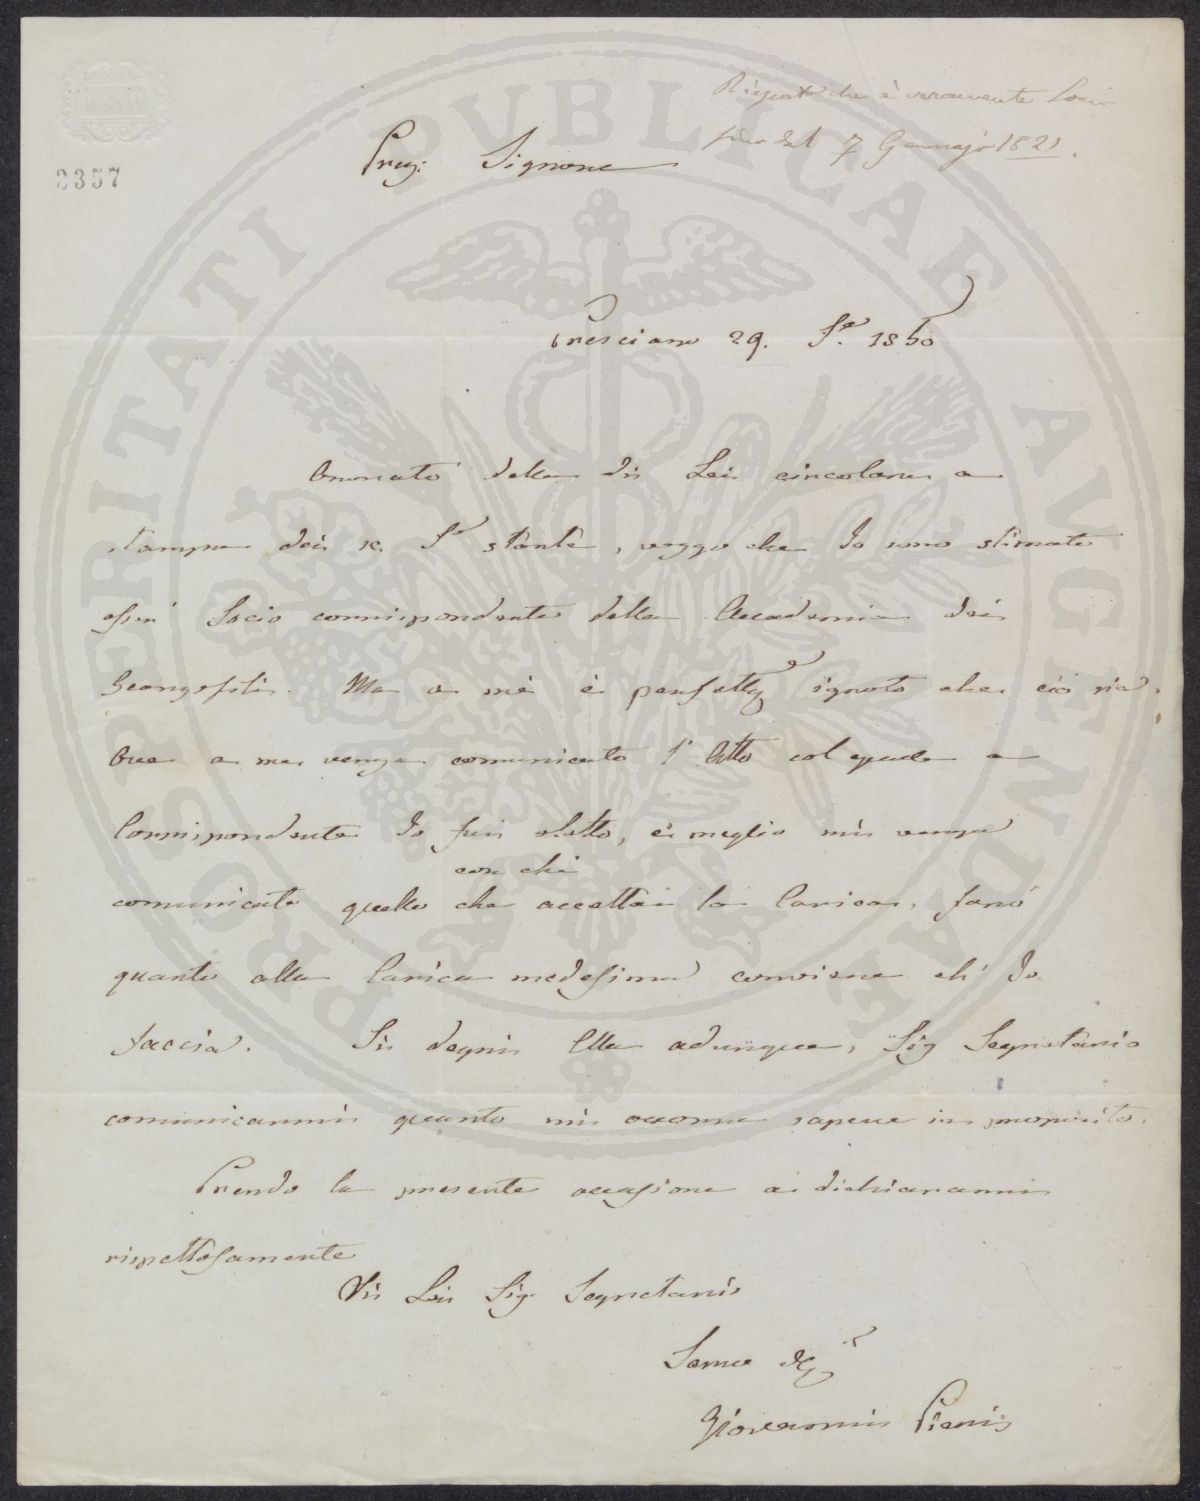 Risposto che è veramente Socio
fino dal 7 Gennajo 1821.
3357
Preg: Signore
Presciano 29. F.e 1850
Onorato della di Lei circolare a
stampa dei 10. F.e stante, veggo che Io sono stimato
esser Socio corrispondente della Accademia dei
Georgofili. Ma a me è perfett.e ignoto che ciò sia.
Ove a me venga comunicato l'Atto col quale a
Corrispondente Io fui eletto, e meglio mi venga
con chi
comunicato quello che accettai la Carica, farò
quanto alla Carica medesima conviene ch'Io
faccia. Si degni Ella adunque, Sig Segretario
comunicarmi quanto mi occorre sapere in proposito.
Prendo la presente occasione a dichiararmi
rispettosamente
Di Lei Sig. Segretario
Servo
Giovanni Pieri
PROSPERITATI PVBLICAE AVGENDAE